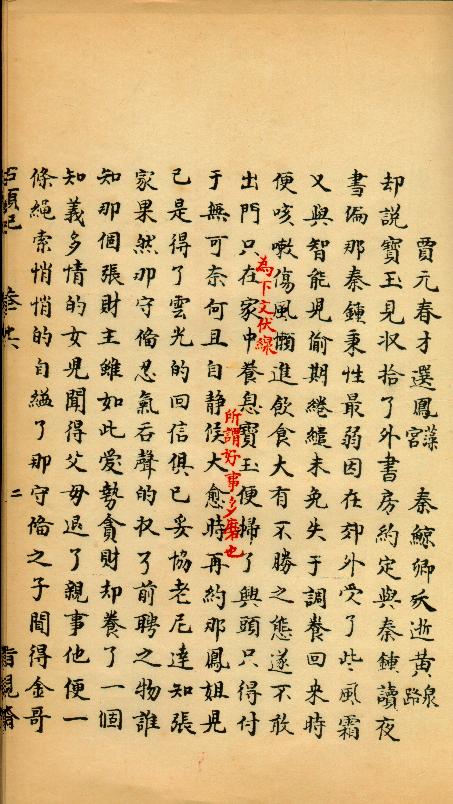 賈元春才選鳳藻宮　秦鯨卿夭逝黃泉路
却說寶玉見収拾了外書房約定與秦鍾讀夜
書偏那秦鍾秉性最弱因在郊外受了些風霜
又與智能兒偷期綣繾未免失于調養回来時
便咳嗽傷風懶進飲食大有不勝之態遂不敢
為下文伏線
出門只在家中養息寶玉便掃了興頭只得付
所謂好事多磨也
于無可奈何且自静候大愈時再約那鳳姐兒
已是得了雲光的回信俱已妥協老尼達知張
家果然那守俻忍氣吞聲的収了前聘之物誰
知那個張財主雖如此愛勢貪財却養了一個
知義多情的女兒聞得父母退了親事他便一
條繩索悄悄的自縊了那守俻之子聞得金哥
石頭記　二